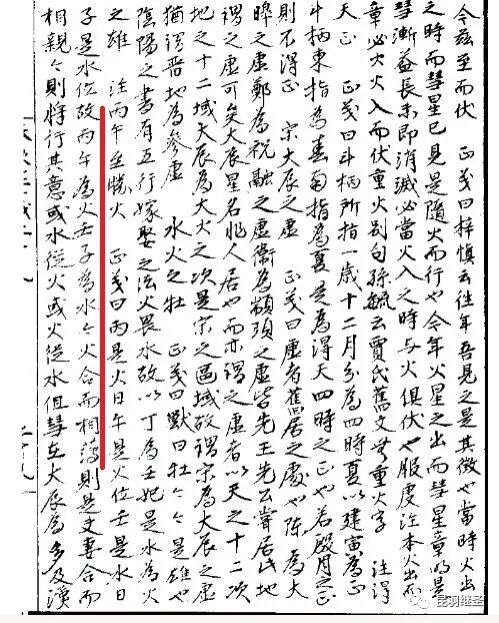 今茲至而伏　正義曰梓慎云往年吾見之是其徵也當時火出
之時而彗星已見是隨火而行也今年火星之出而彗星章明是
彗漸益長未即消滅必當火入之時与火俱伏也服虔注本火出而
章必火火入而伏重火別句孫毓云賈氏舊文無重火字　注得
天正　正義曰斗柄所指一歲十二月分為四時夏以建寅為正
斗柄東指為春南指為夏是為得天四時之正也若殷周之正
則不得正　宋大辰之虛　正義曰虛者舊居之處也陳為大
皞之虛鄭為祝融之虛衛為顓頊之虛皆先王先公嘗居此地
謂之虛可矣大辰星名非人居也而亦謂之虛者以天之十二次
地之十二域大辰為大火之次是宋之區域故謂宋為大辰之虛
猶謂晋地為參虛　水火之牡　正義曰獸曰牡々々是雄也
陰陽之書有五行嫁娶之法火畏水故以丁為壬妃是水為火
之雄　注丙午至勝火　正義曰丙是火日午是火位壬是水日
子是水位故丙午為火壬子為水々火合而相薄則是夫妻合而
相親々則將行其意或水從火或火從水但彗在大辰為多及漢
昆羽继圣